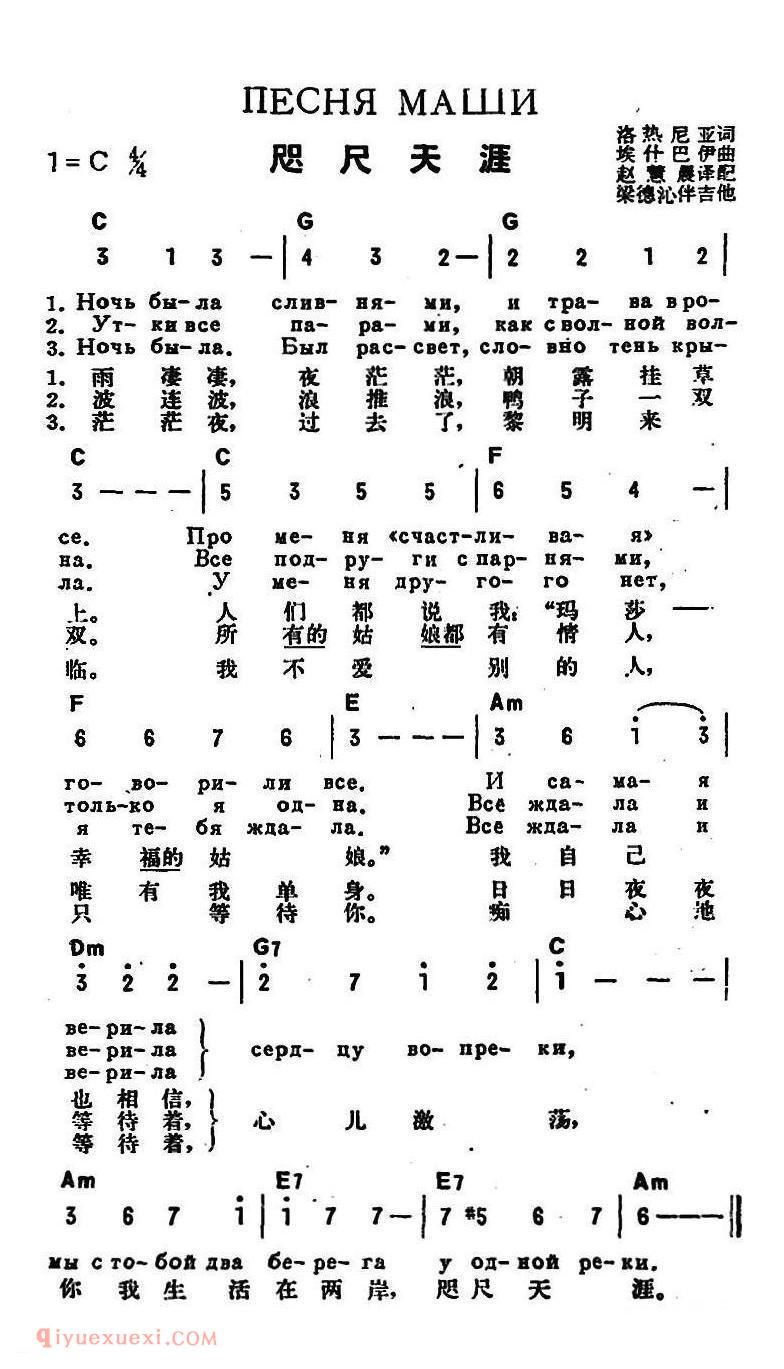 ПЕСНЯ МАШИ
1=C 4/4
咫尺天涯
洛热尼亚词
埃什巴伊曲
赵慧晨译配
梁德沁伴吉他
C G G
3 1 3 — | 4 3 2 — | 2 2 1 2 |
1. Ночь бы-ла слив-ня-ми, и тра-ва в ро-
2. Ут-ки все па-ра-ми, как с вол-ной вол-
3. Ночь бы-ла. Был рас-свет, сло-вно тень кры-
1. 雨凄凄, 夜茫茫, 朝露挂草
2. 波连波, 浪推浪, 鸭子一双
3. 茫茫夜, 过去了, 黎明来
C C F
3 — — — | 5 3 5 5 | 6 5 4 — |
се. Про ме-ня «счаст-ли-ва-я»
на. Все под-ру-ги с пар-ня-ми,
ла. У ме-ня дру-го-го нет,
上。人们都说我: “玛莎——
双。所有的姑娘都有情人,
临。我不爱别的人,
F E Am
6 6 7 6 | 3 — — — | 3 6 1 3
го-во-ри-ли все. И са-ма-я
толь-ко я од-на. Всё жда-ла и
я те-бя жда-ла. Всё жда-ла и
幸福的姑娘。” 我自己
唯有我单身。日日夜夜
只等待你。痴心池
Dm G7 C
3 2 2 — | 2 7 1 2 | 1 — — —
ве-ри-ла
ве-ри-ла серд-цу во-пре-ки,
ве-ри-ла
也相信,
等待着, 心儿激荡,
等待着,
Am E7 E7 Am
3 6 7 1 | 1 7 7 — | 7 #5 6 7 | 6 — — — ||
мы с то-бой два бе-ре-га у од-ной ре-ки.
你我生活在两岸, 咫尺天涯。
qiyuexuexi.com